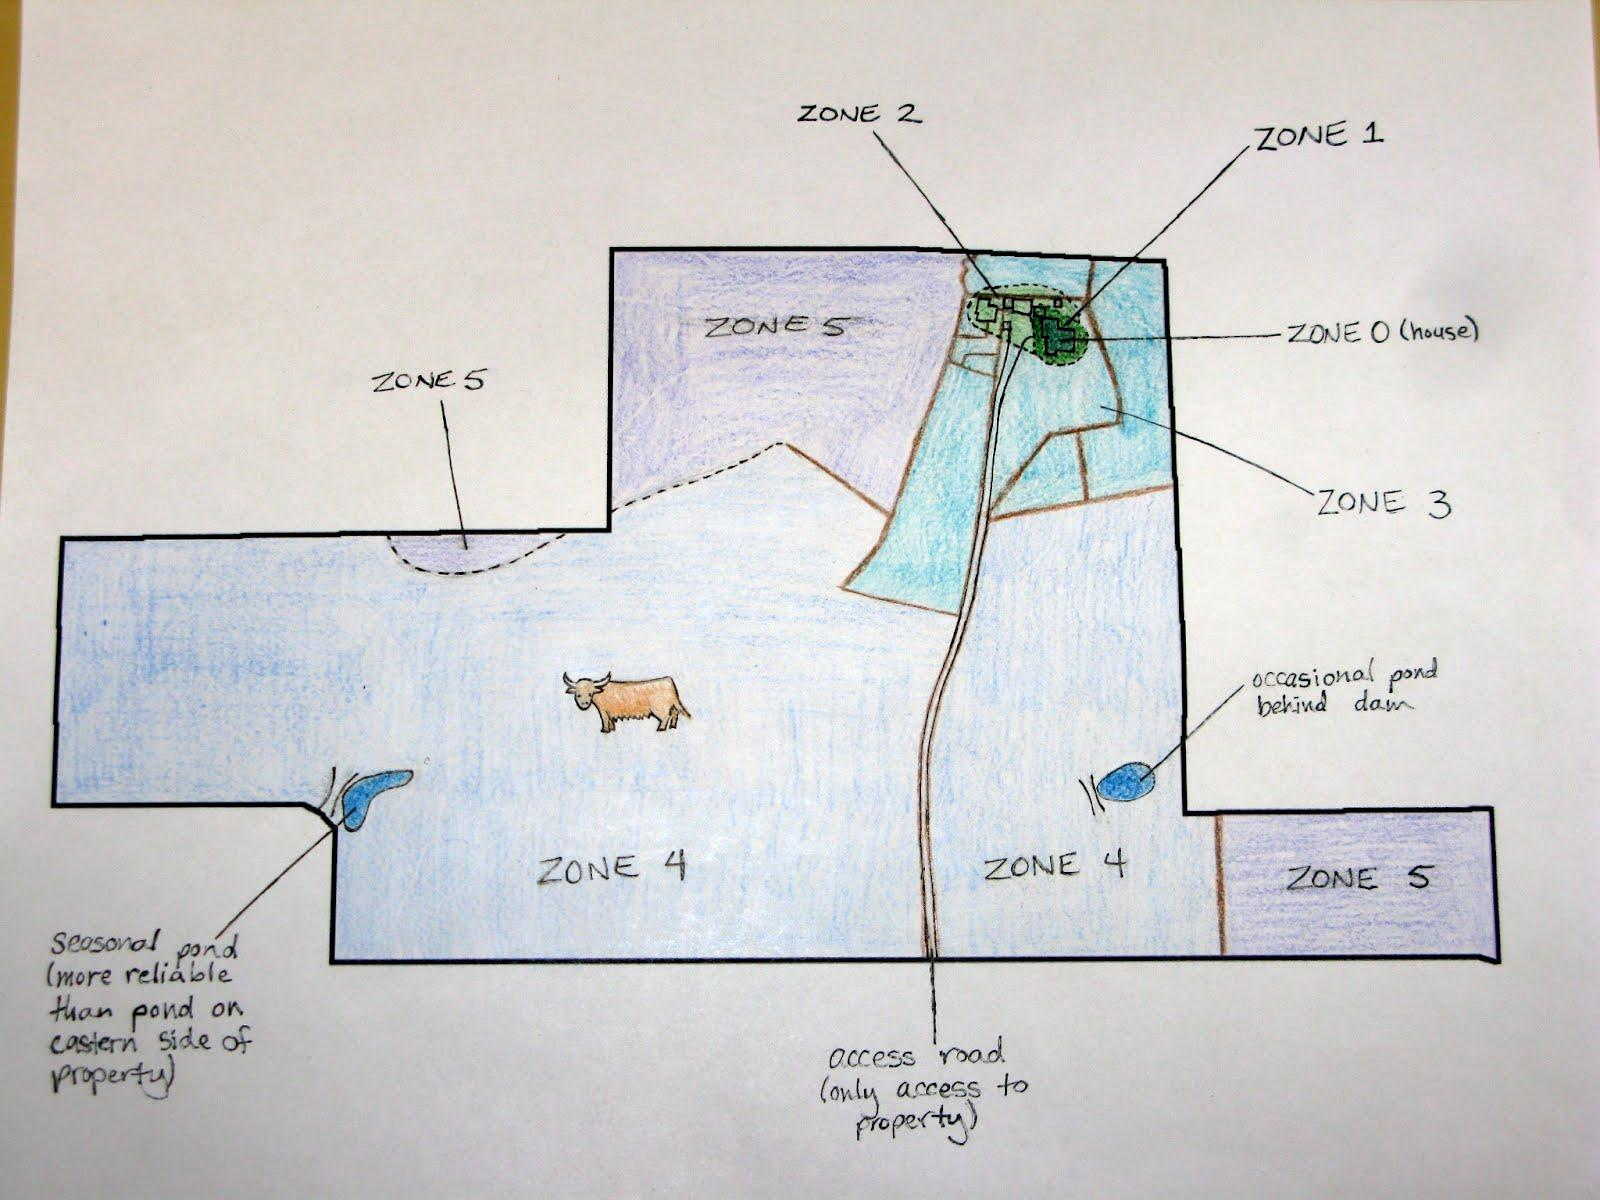 ZONE 2
ZONE 1
ZONE 5
ZONE 0 (house)
ZONE 5
ZONE 3
occasional pond
behind dam
ZONE 4
ZONE 4
ZONE 5
seasonal pond
(more reliable
than pond on
eastern side of
property)
access road
(only access to
property)